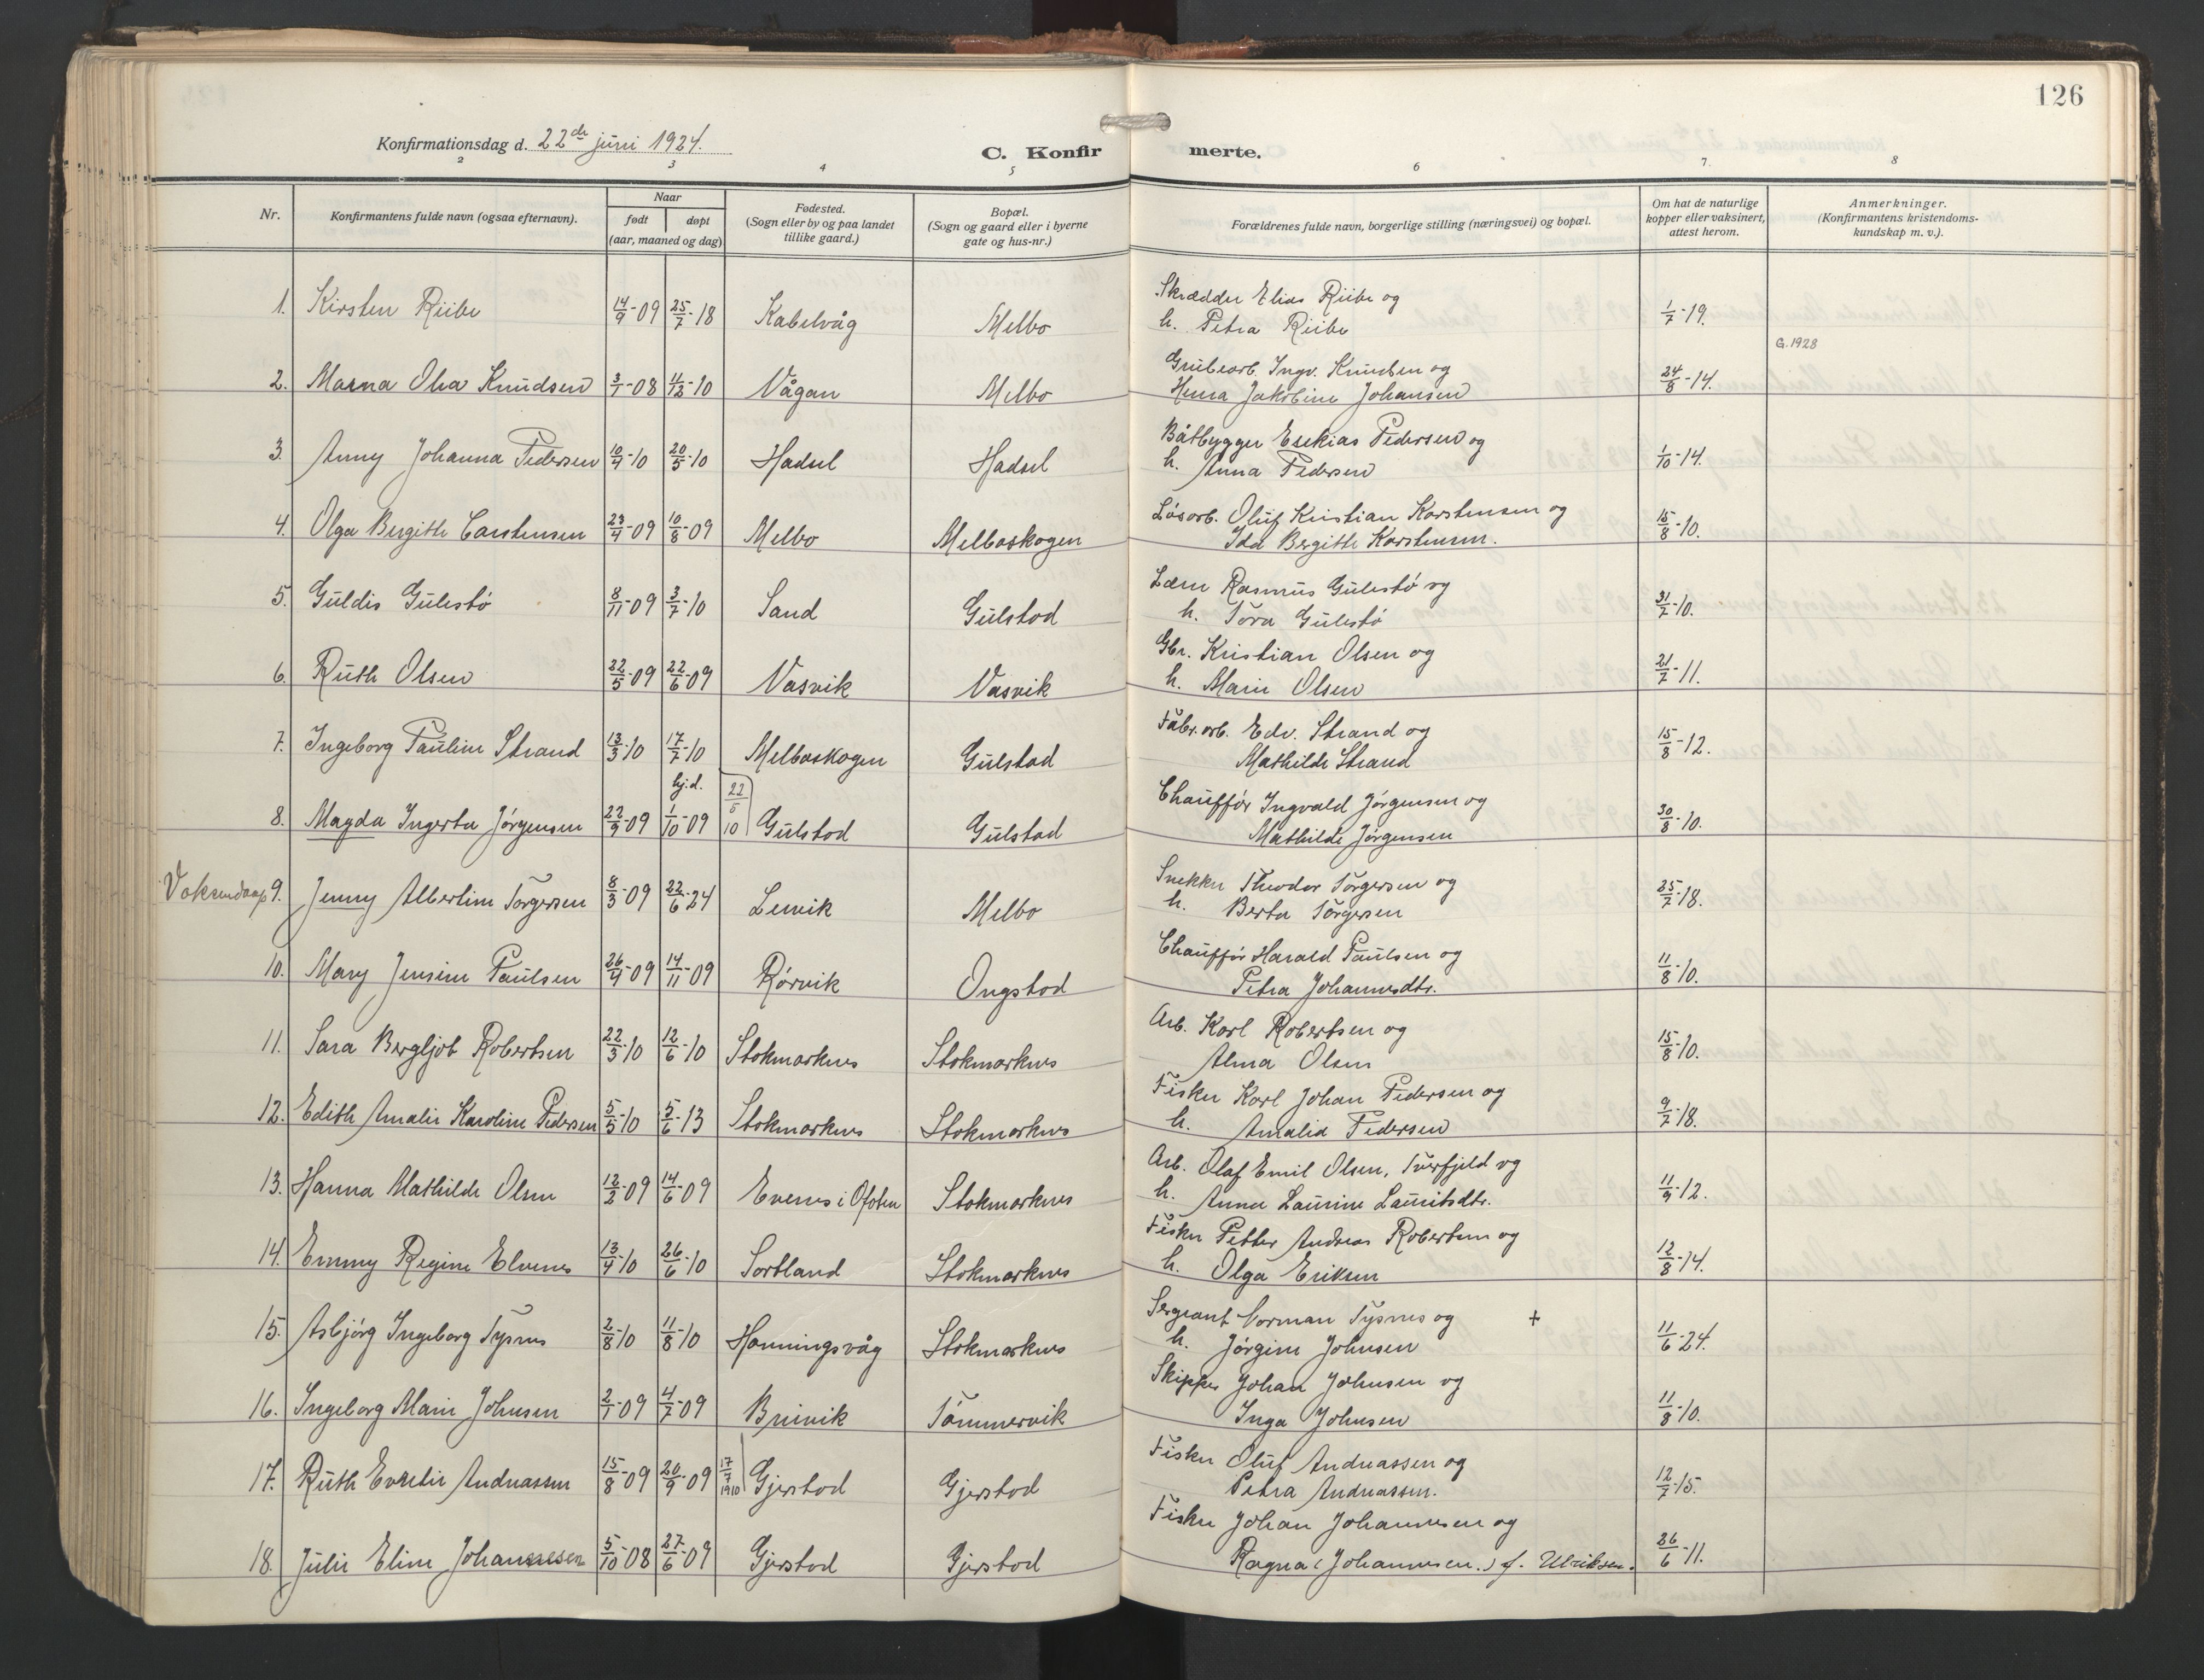 126
Konfirmationsdag d. 22de juni 1924.
C. Konfir merte.
2 3 4 5 6 7. 8
Nr.
Konfirmantens fulde navn (ogsaa efternavn).
Naar
født døpt
(aar, maaned og dag)
Fødested.
(Sogn eller by og paa landet
tillike gaard.)
Bopæl.
(Sogn og gaard eller i byerne
gate og hus-nr.)
Forældrenes fulde navn, borgerlige stilling (næringsvei) og bopæl.
Om hat de naturlige
kopper eller vaksinert,
attest herom.
Anmerkninger.
(Konfirmantens kristendoms-
kundskap m. v.).
1. Kirsten Riibe 14/9-09 25/7-18 Kabelvåg Melbo Skrædder Elias Riibe og
h. Petra Riibe 1/7-19.
G. 1928
2. Marna Olea Knudsen 3/1-08 4/12-10 Vågan Melbo Grubearb. Ingv. Knudsen og
Jakobine Johansen 24/8-14.
3. Anny Johanna Pedersen 10/4-10 20/5-10 Hadsel Hadsel Båtbygger Esekias Pedersen og
h. Anna Pedersen 1/10-14.
4. Olga Bergithe Carstensen 23/4-09 10/8-09 Melbo Melboskogen Løsarb. Oluf Kristian Karstensen og
Ida Bergithe Karstensen. 15/8-10.
5. Guldis Gulestø 8/11-09 3/7-10 Sand Gulstad Lærer Rasmus Gulestø og
h. Tora Gulestø 31/7-10.
6. Ruth Olsen 22/5-09 22/6-09 Vasvik Vasvik Gbr. Kristian Olsen og
h. Marie Olsen 21/7-11.
7. Ingeborg Pauline Strand 13/3-10 17/7-10 Melboskogen Gulstad Fabr.arb. Edv. Strand og
Mathilde Strand 15/8-12.
hj.d. 22/5 10
8. Magda Ingerta Jørgensen 22/9-09 1/10-09 Gulstad Gulstad Chauffør Ingvald Jørgensen og
Mathilde Jørgensen 30/8-10.
Voksendaap 9. Jenny Albertine Torgersen 8/3-09 22/6-24 Lervik Melbo Snekker Theodor Torgersen og
h. Berta Torgersen 25/7-18.
10. Mary Jensine Paulsen 26/4-09 14/11-09 Rørvik Ongstad Chauffør Harald Paulsen og
Petra Johannesdtr. 11/8-10.
11. Sara Bergljot Robertsen 22/3-10 12/6-10 Stokmarknes Stokmarknes Arb. Karl Robertsen og
Alma Olsen 15/8-10.
12. Edith Amalie Karoline Pedersen 5/5-10 5/6-13 Stokmarknes Stokmarknes Fisker Karl Johan Pedersen og
h. Amalia Pedersen 9/7-18.
13. Hanna Mathilde Olsen 12/2-09 14/6-09 Evenes i Ofoten Stokmarknes Arb. Olaf Emil Olsen, Tverfjeld og
h. Anna Laurine Lauritsdtr. 11/9-12.
14. Emmy Regine Elvenes 13/4-10 26/6-10 Sortland Stokmarknes Fisker Petter Andreas Robertsen og
h. Olga Eriksen 12/8-14.
15. Asbjørg Ingeborg Tysnes 2/8-10 11/8-10 Honningsvåg Stokmarknes Sergeant Norman Tysnes og +
h. Jørgine Johnsen 11/6-24.
16. Ingeborg Marie Johnsen 2/1-09 4/7-09 Breivik Tømmervik Skipper Johan Johnsen og
Inga Johnsen 11/8-10.
17. Ruth Evelie Andreassen 15/8-09 20/9-09 17/7 1910 Gjerstad Gjerstad Fisker Oluf Andreassen og
Petra Andreassen. 12/7-15.
18. Julie Eline Johannesen 5/10-08 27/6-09 Gjerstad Gjerstad Fisker Johan Johannesen og
Ragna (Johannesen.) f. Ulriksen. 26/6-11.